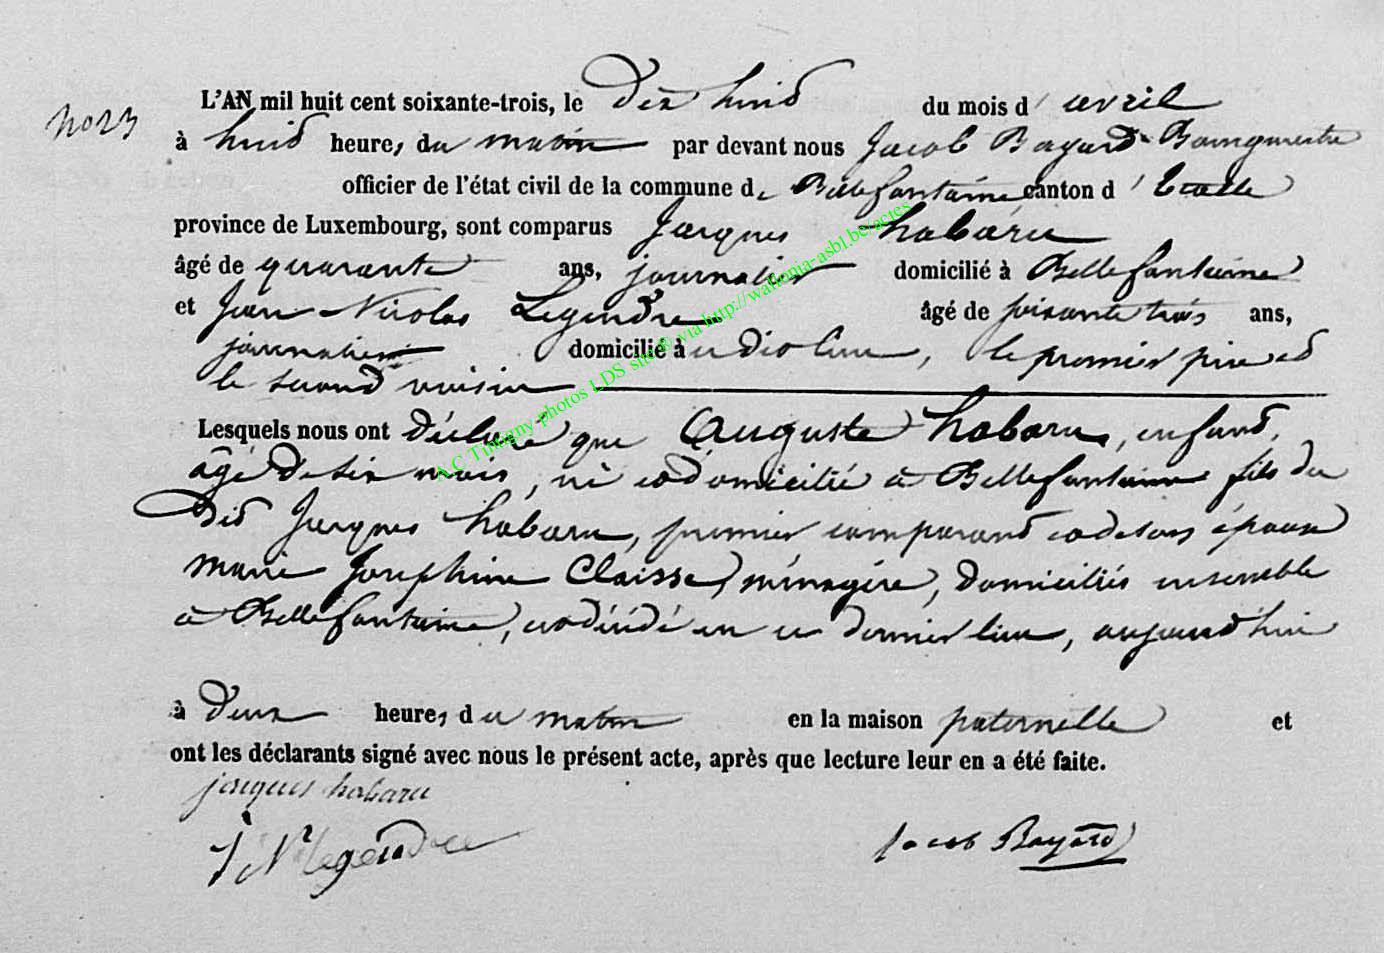 No 23
L'AN mil huit cent soixante-trois, le dix huid du mois d'avril
à huid heures du matin par devant nous Jacob Bayard Bourgmestre
officier de l'état civil de la commune de Bellefontaine canton d'Etalle
province de Luxembourg, sont comparus Jacques habaru
âgé de quarante ans, journalier domicilié à Bellefontaine
et Jean Nicolas Legendre âgé de soixante trois ans,
journalier domicilié à udiolieu, le premier père ed
le second voisin
Lesquels nous ont déclaré que Auguste habaru, enfand,
âgé de six mois, né edomicilié à Bellefontaine fils du
did Jacques habaru, premier comparand edeson épouse
marie Josephine Claisse, ménagère, domiciliés ensemble
à Bellefontaine, ed décédé en ce dernier lieu, aujourd'hui
à deux heures du matin en la maison paternelle et
ont les déclarants signé avec nous le présent acte, après que lecture leur en a été faite.
jacques habaru
J N legendre
Jacob Bayard
A.C Tintigny photos LDS site® via http://wallonia-asbl.be/actes